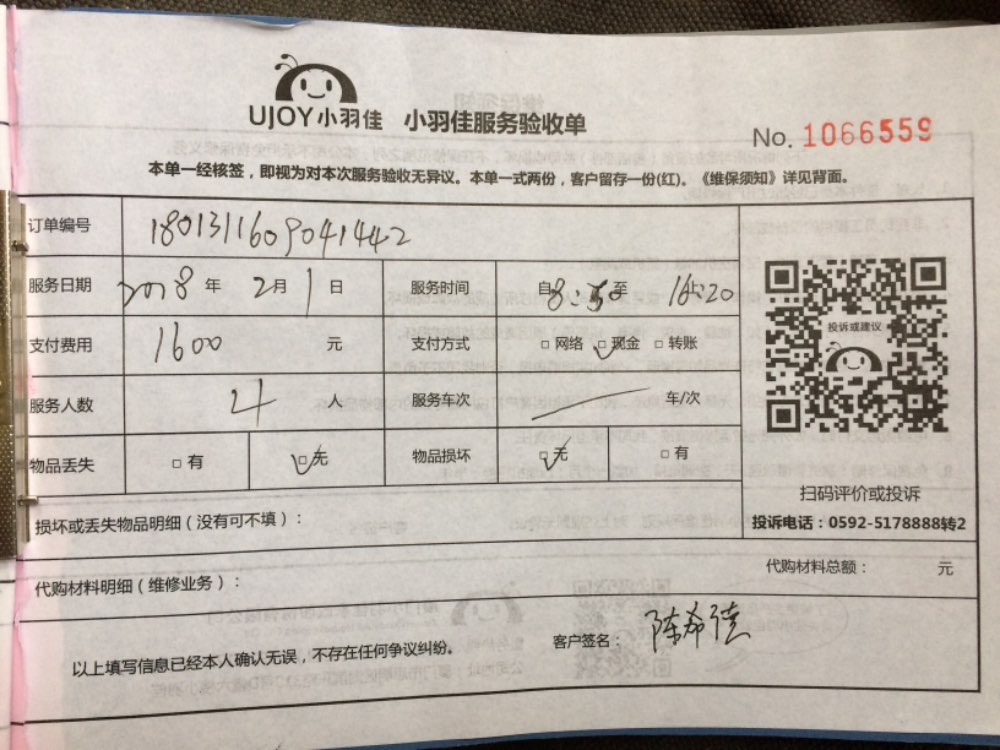 UJOY小羽佳 小羽佳服务验收单
No. 1066559
本单一经核签，即视为对本次服务验收无异议。本单一式两份，客户留存一份(红)。《维保须知》详见背面。
订单编号 1801311609041442
服务日期 2018 年 2月 1 日 服务时间 自8:30至 16:20
支付费用 1600 元 支付方式 □ 网络 □ 现金 □ 转账
投诉或建议
服务人数 4 服务车次 车/次
物品丢失 □ 有 □ 无 物品损坏 □ 无 □ 有
扫码评价或投诉
损坏或丢失物品明细（没有可不填）：
投诉电话：0592-5178888转2
代购材料明细（维修业务）： 代购材料总额： 元
以上填写信息已经本人确认无误，不存在任何争议纠纷。 客户签名： 陈希德